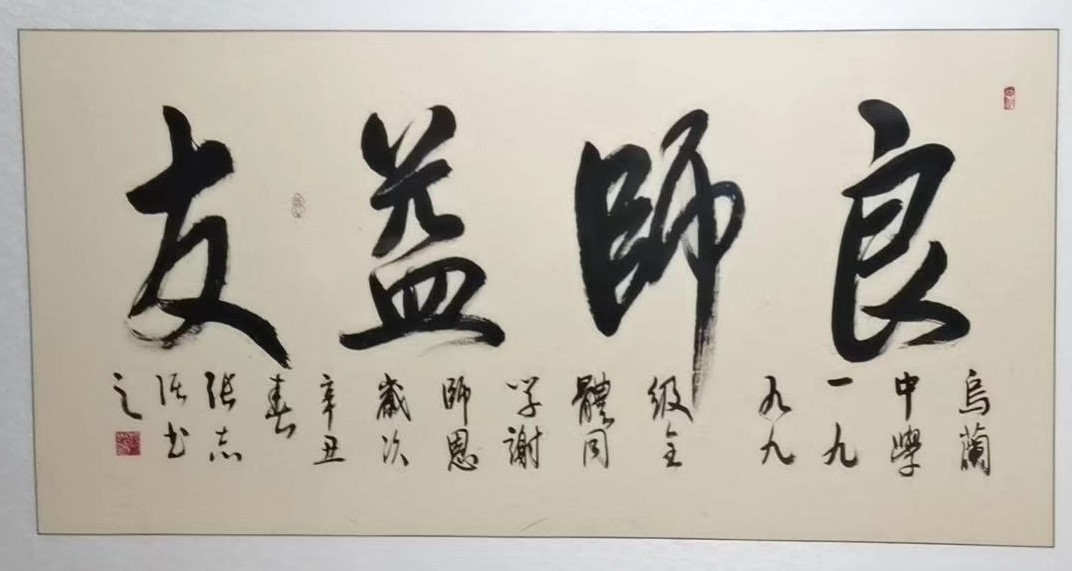 良師益友
烏蘭
中學
一九
九九
级全
體同
学謝
師恩
歲次
辛丑
春
张志
书
之